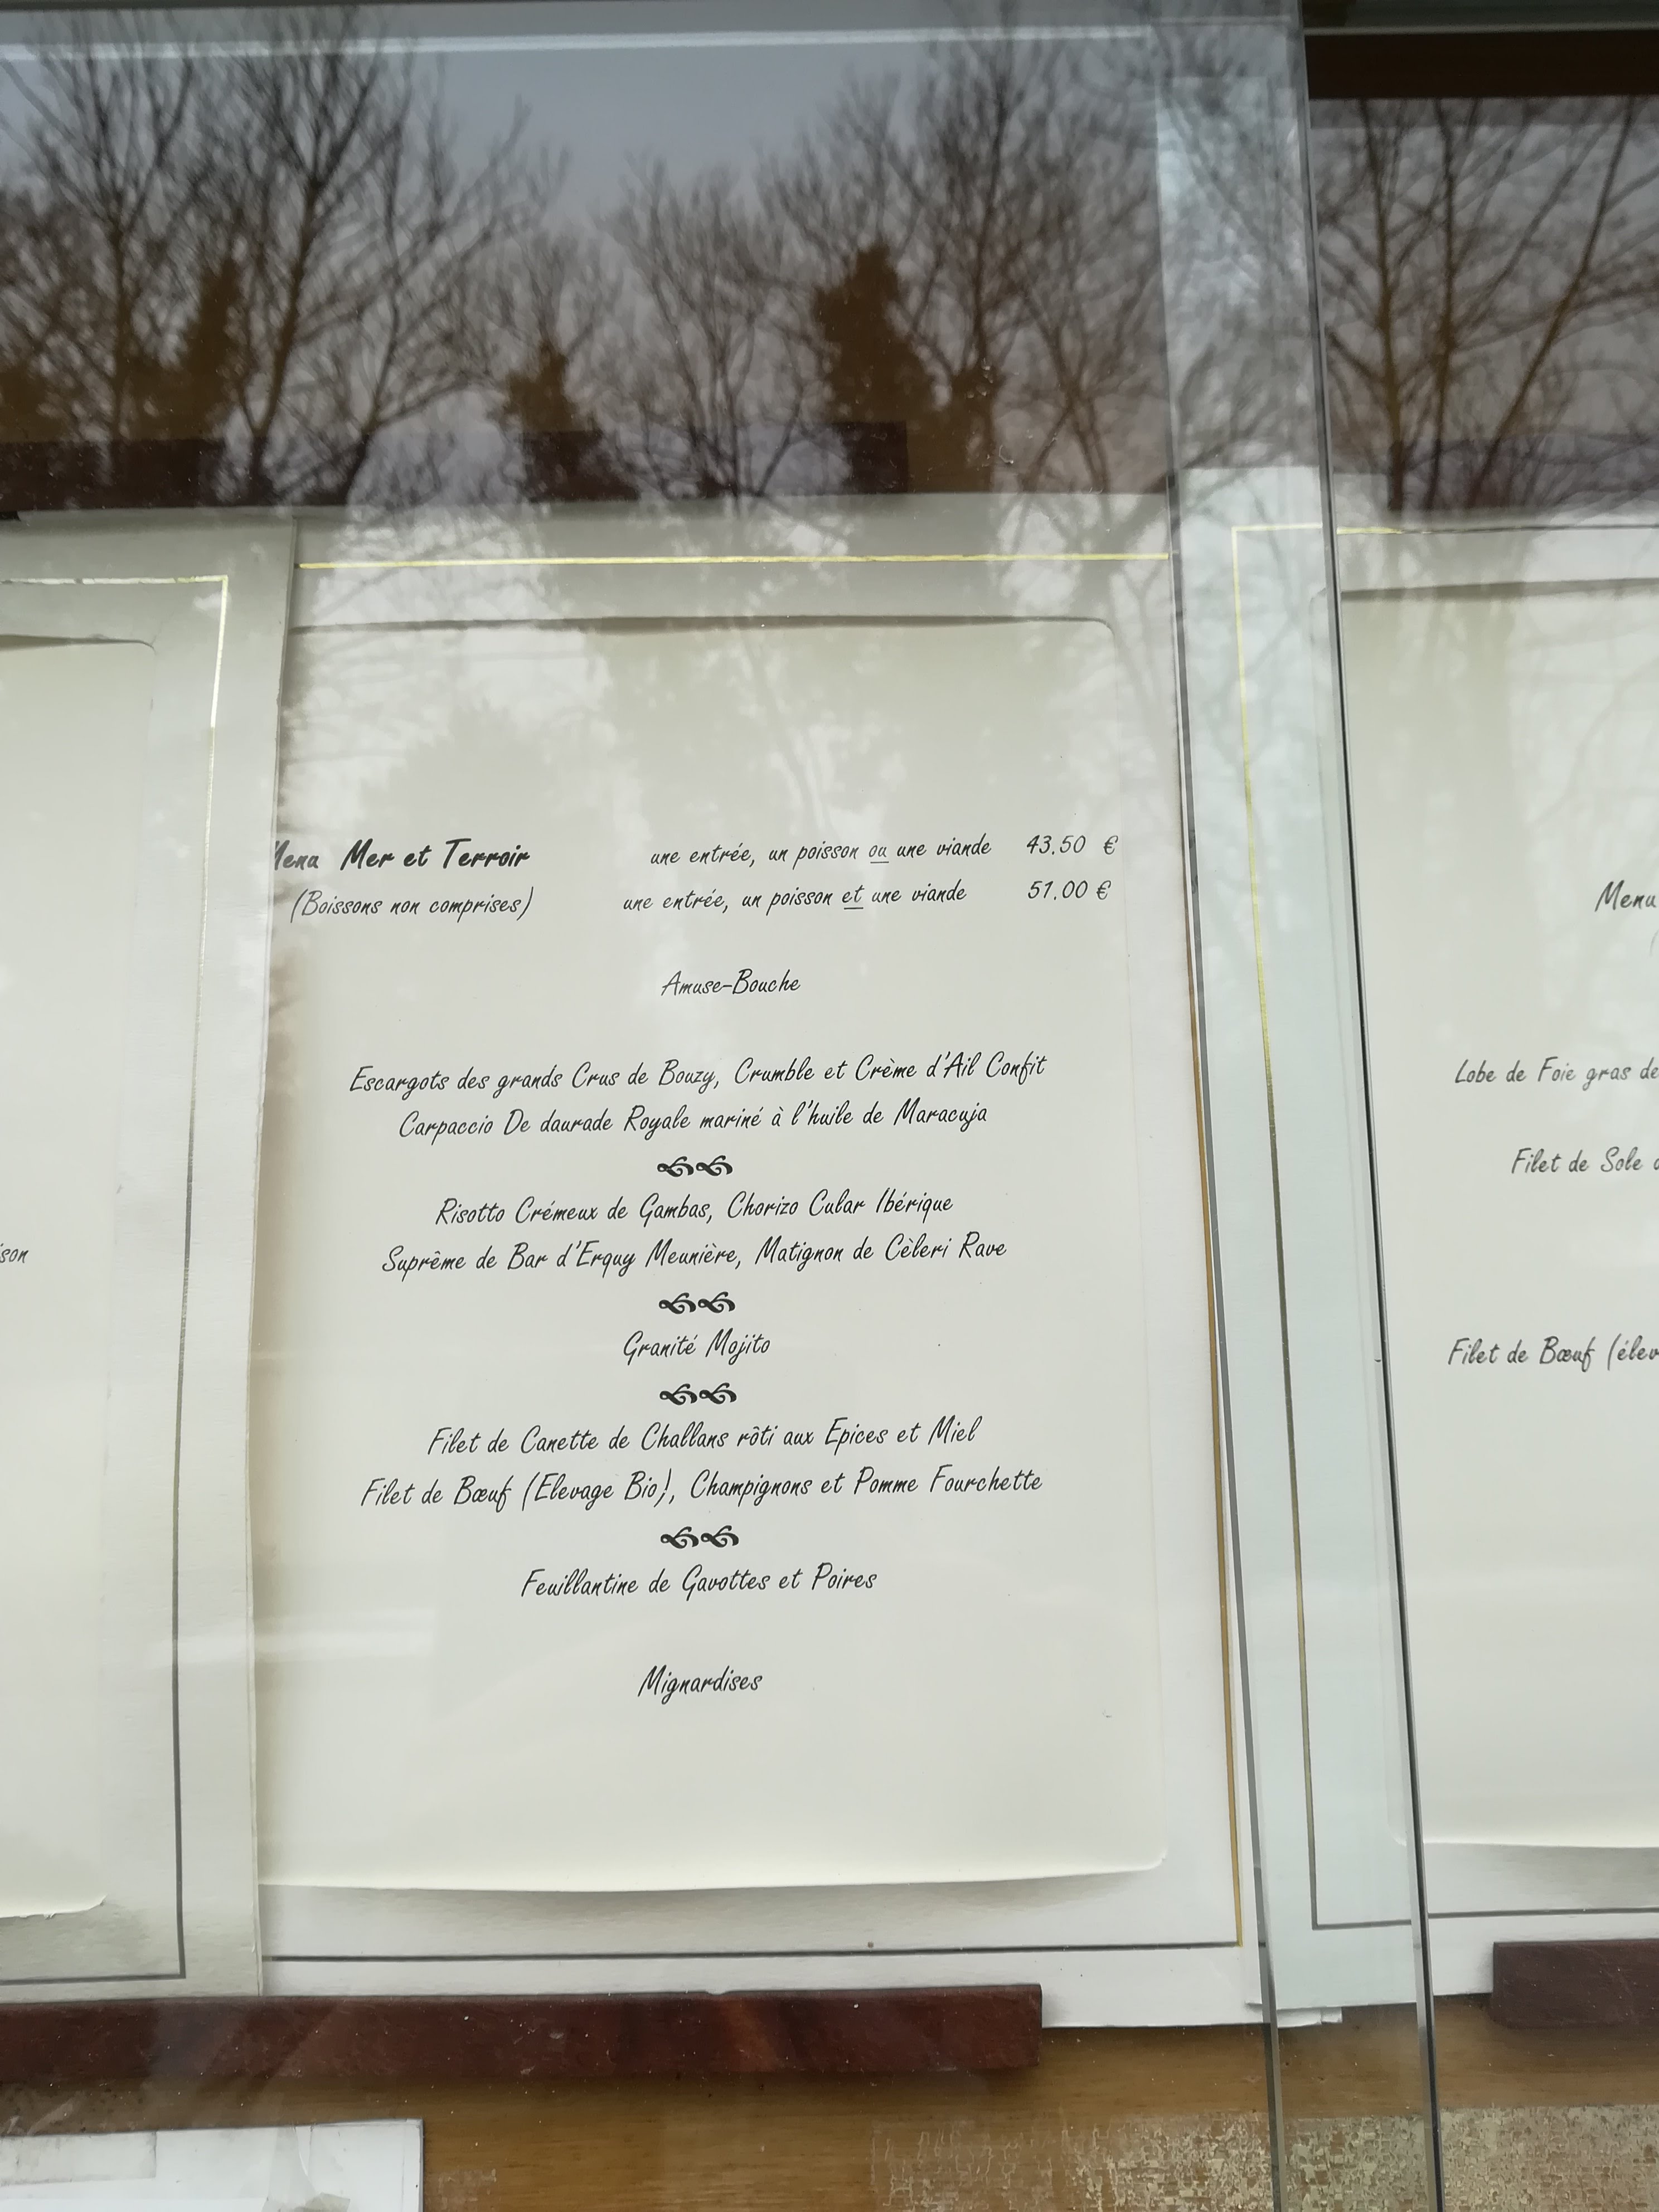 Menu Mer et Terroir une entrée, un poisson ou une viande 43.50 €
(Boissons non comprises) une entrée, un poisson et une viande 51.00 €
Amuse-Bouche
Escargots des grands Crus de Bouzy, Crumble et Crème d'Ail Confit
Carpaccio De daurade Royale mariné à l'huile de Maracuja
Risotto Crémeux de Gambas, Chorizo Cular Ibérique
Suprême de Bar d'Erquy Meunière, Matignon de Cèleri Rave
Granité Mojito
Filet de Canette de Challans rôti aux Epices et Miel
Filet de Bœuf (Elevage Bio), Champignons et Pomme Fourchette
Feuillantine de Gavottes et Poires
Mignardises
Menu
Lobe de Foie gras de
Filet de Sole
Filet de Bœuf